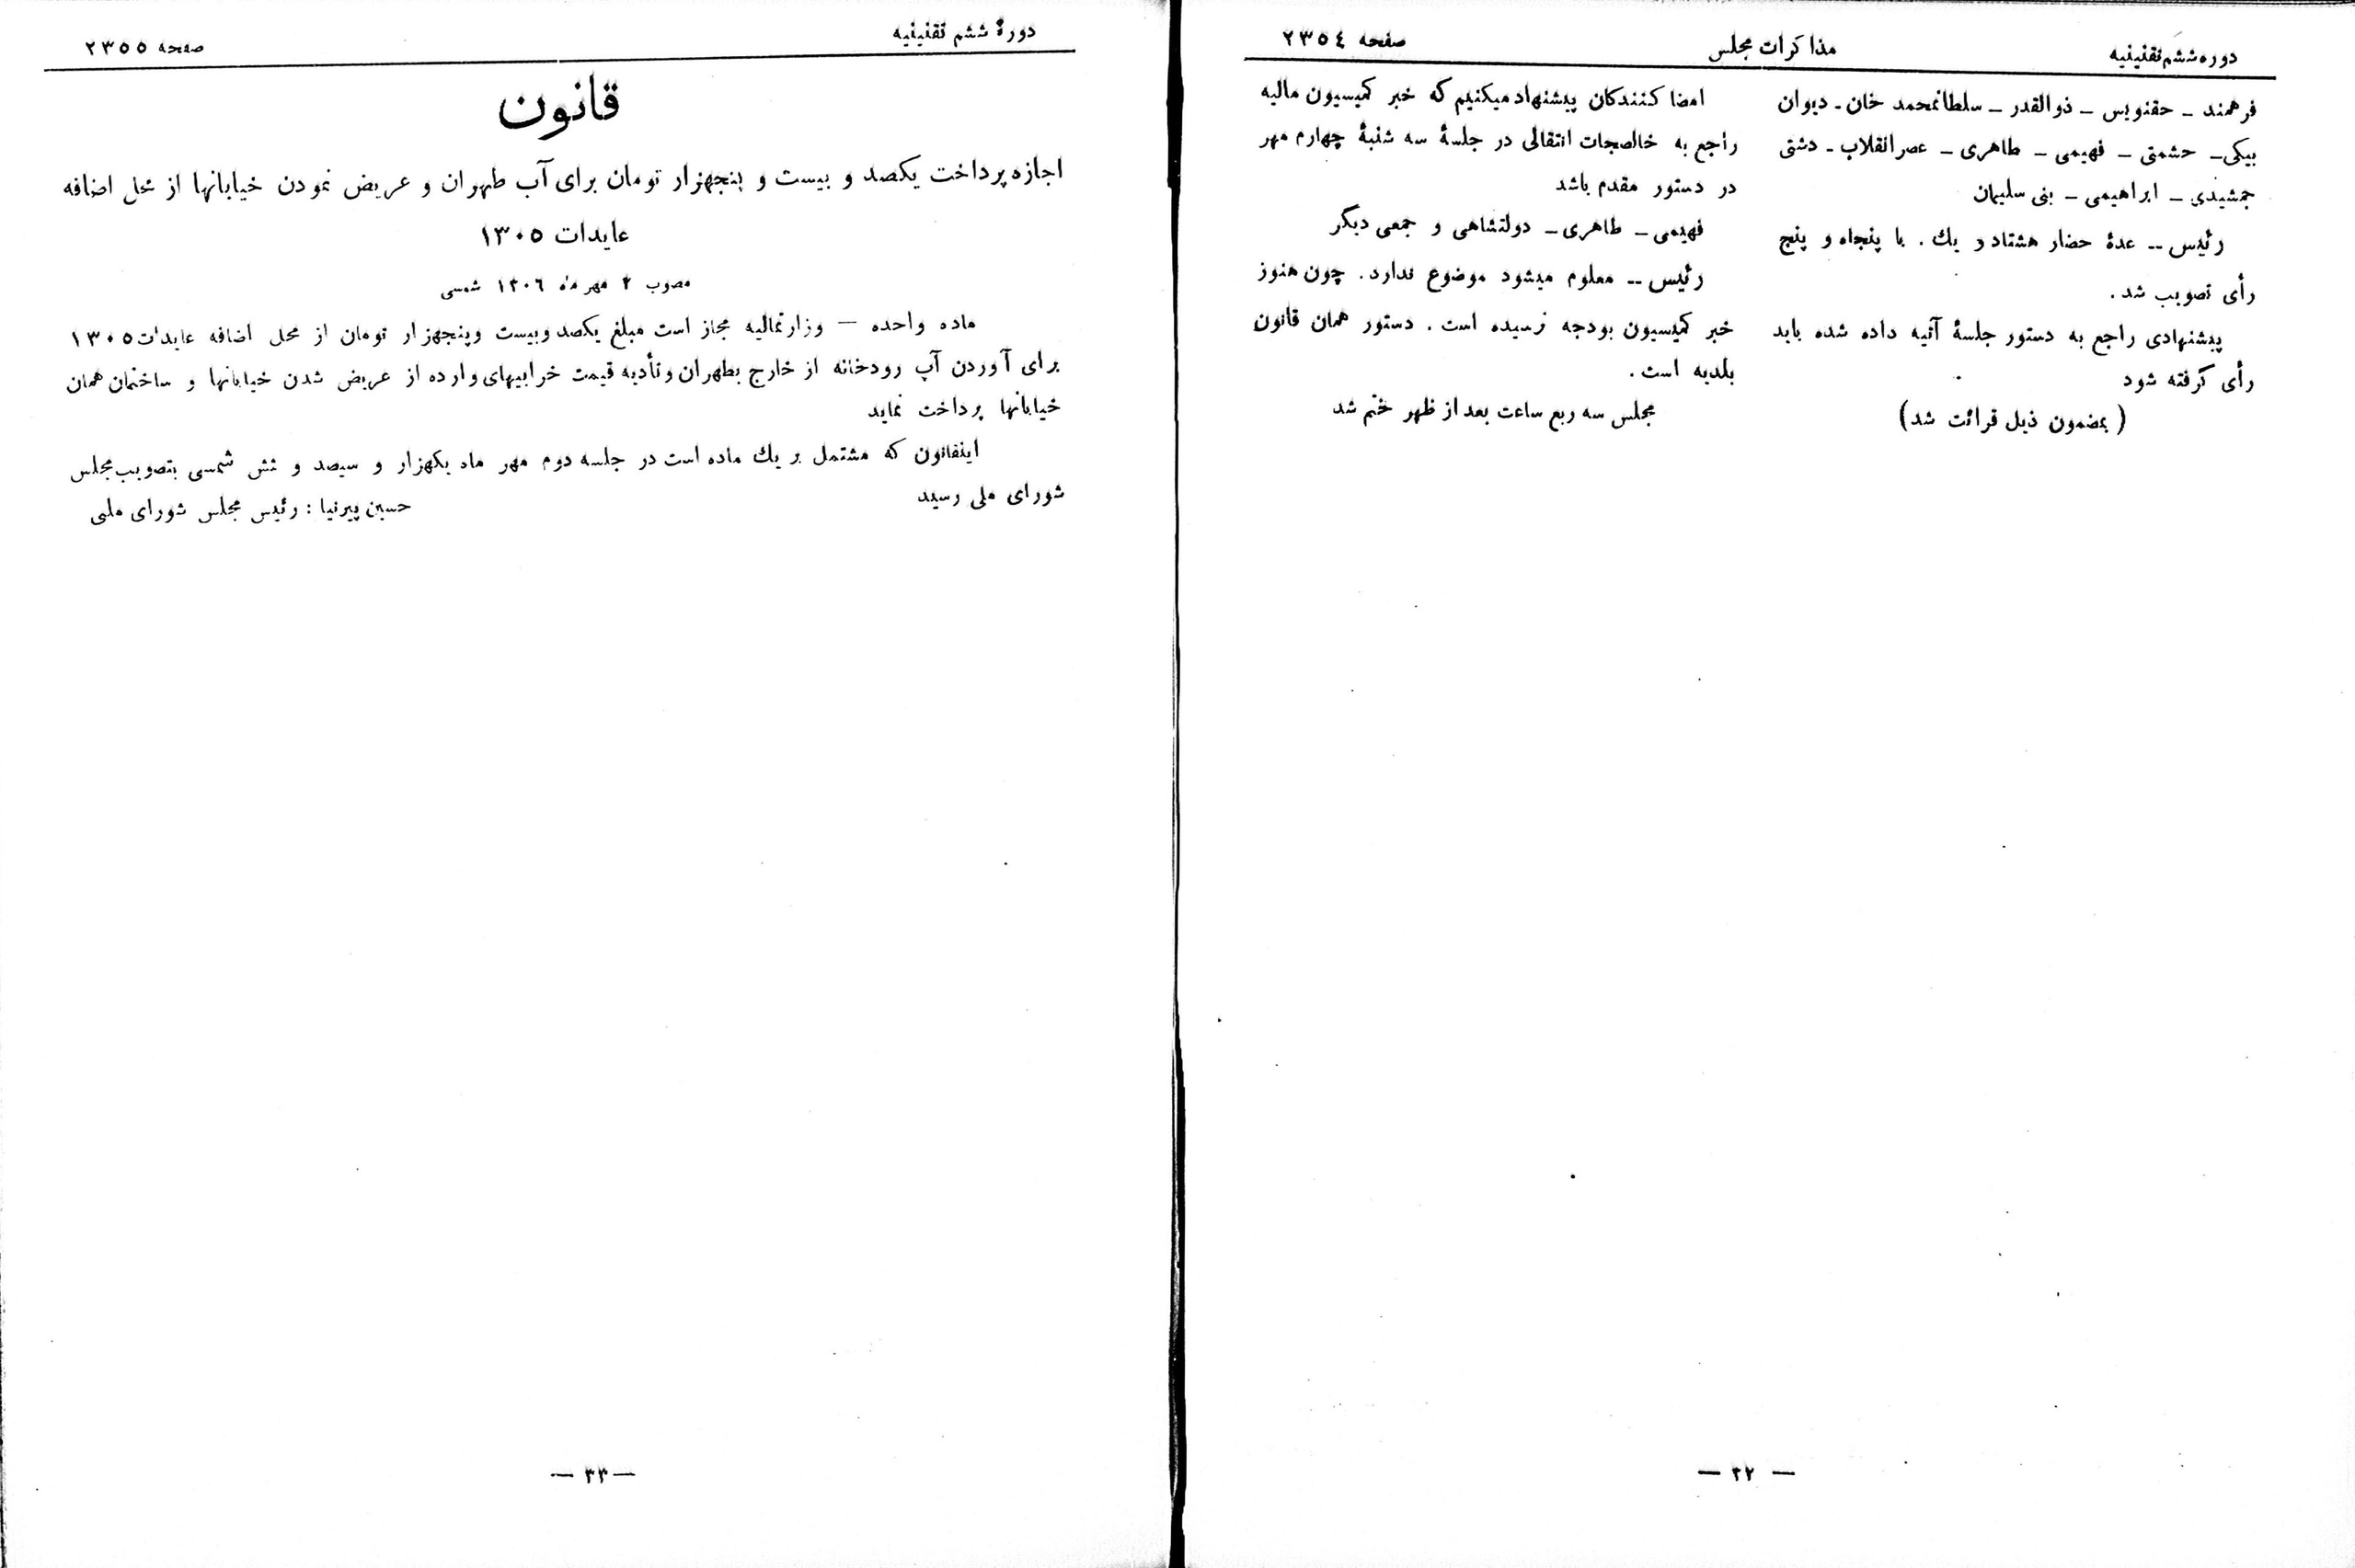 دوره ششم تقنینیه
مذاکرات مجلس
صفحه ۲۳۵٤
فرهمند ـ حقنویس ـ ذوالقدر ـ سلطانمحمد خان ـ دیوان
بیکی ـ حشمتی ـ فهیمی ـ طاهری ـ عصرانقلاب ـ دشتی
جمشیدی ـ ابراهیمی ـ بنی سلیمان
رئیس ــ عدهٔ حضار هشتاد و یك . با پنجاه و پنج
رأی تصویب شد .
پیشنهادی راجع به دستور جلسهٔ آتیه داده شده باید
رأی گرفته شود
( بمضمون ذیل قرائت شد)
امضا کنندکان پیشنهاد میکنیم که خبر کمیسیون مالیه
راجع به خالصجات انتقالی در جلسهٔ سه شنبهٔ چهارم مهر
در دستور مقدم باشد
فهیمی ـ طاهری ـ دولتشاهی و جمعی دیگر
رئیس ــ معلوم میشود موضوع ندارد . چون هنوز
خبر کمیسیون بودجه نرسیده است . دستور همان قانون
بلدیه است .
مجلس سه ربع ساعت بعد از ظهر ختم شد
— ۳۲ —
دورهٔ ششم تقنینیه
صفحه ۲۳۵۵
قانون
اجازه پرداخت یکصد و بیست و پنجهزار تومان برای آب طهران و عریض نمودن خیابانها از محل اضافه
عایدات ۱۳۰۵
مصوب ۲ مهر ماه ۱۳۰٦ شمسی
ماده واحده — وزارتمالیه مجاز است مبلغ یکصد وبیست وپنجهزار تومان از محل اضافه عایدات ۱۳۰۵
برای آوردن آب رودخانه از خارج بطهران وتأدیه قیمت خرابیهای وارده از عریض شدن خیابانها و ساختمان همان
خیابانها پرداخت نماید
اینقانون که مشتمل بر یك ماده است در جلسه دوم مهر ماه یکهزار و سیصد و شش شمسی بتصویب مجلس
شورای ملی رسید
حسین پیرنیا : رئیس مجلس شورای ملی
— ۳۳ —